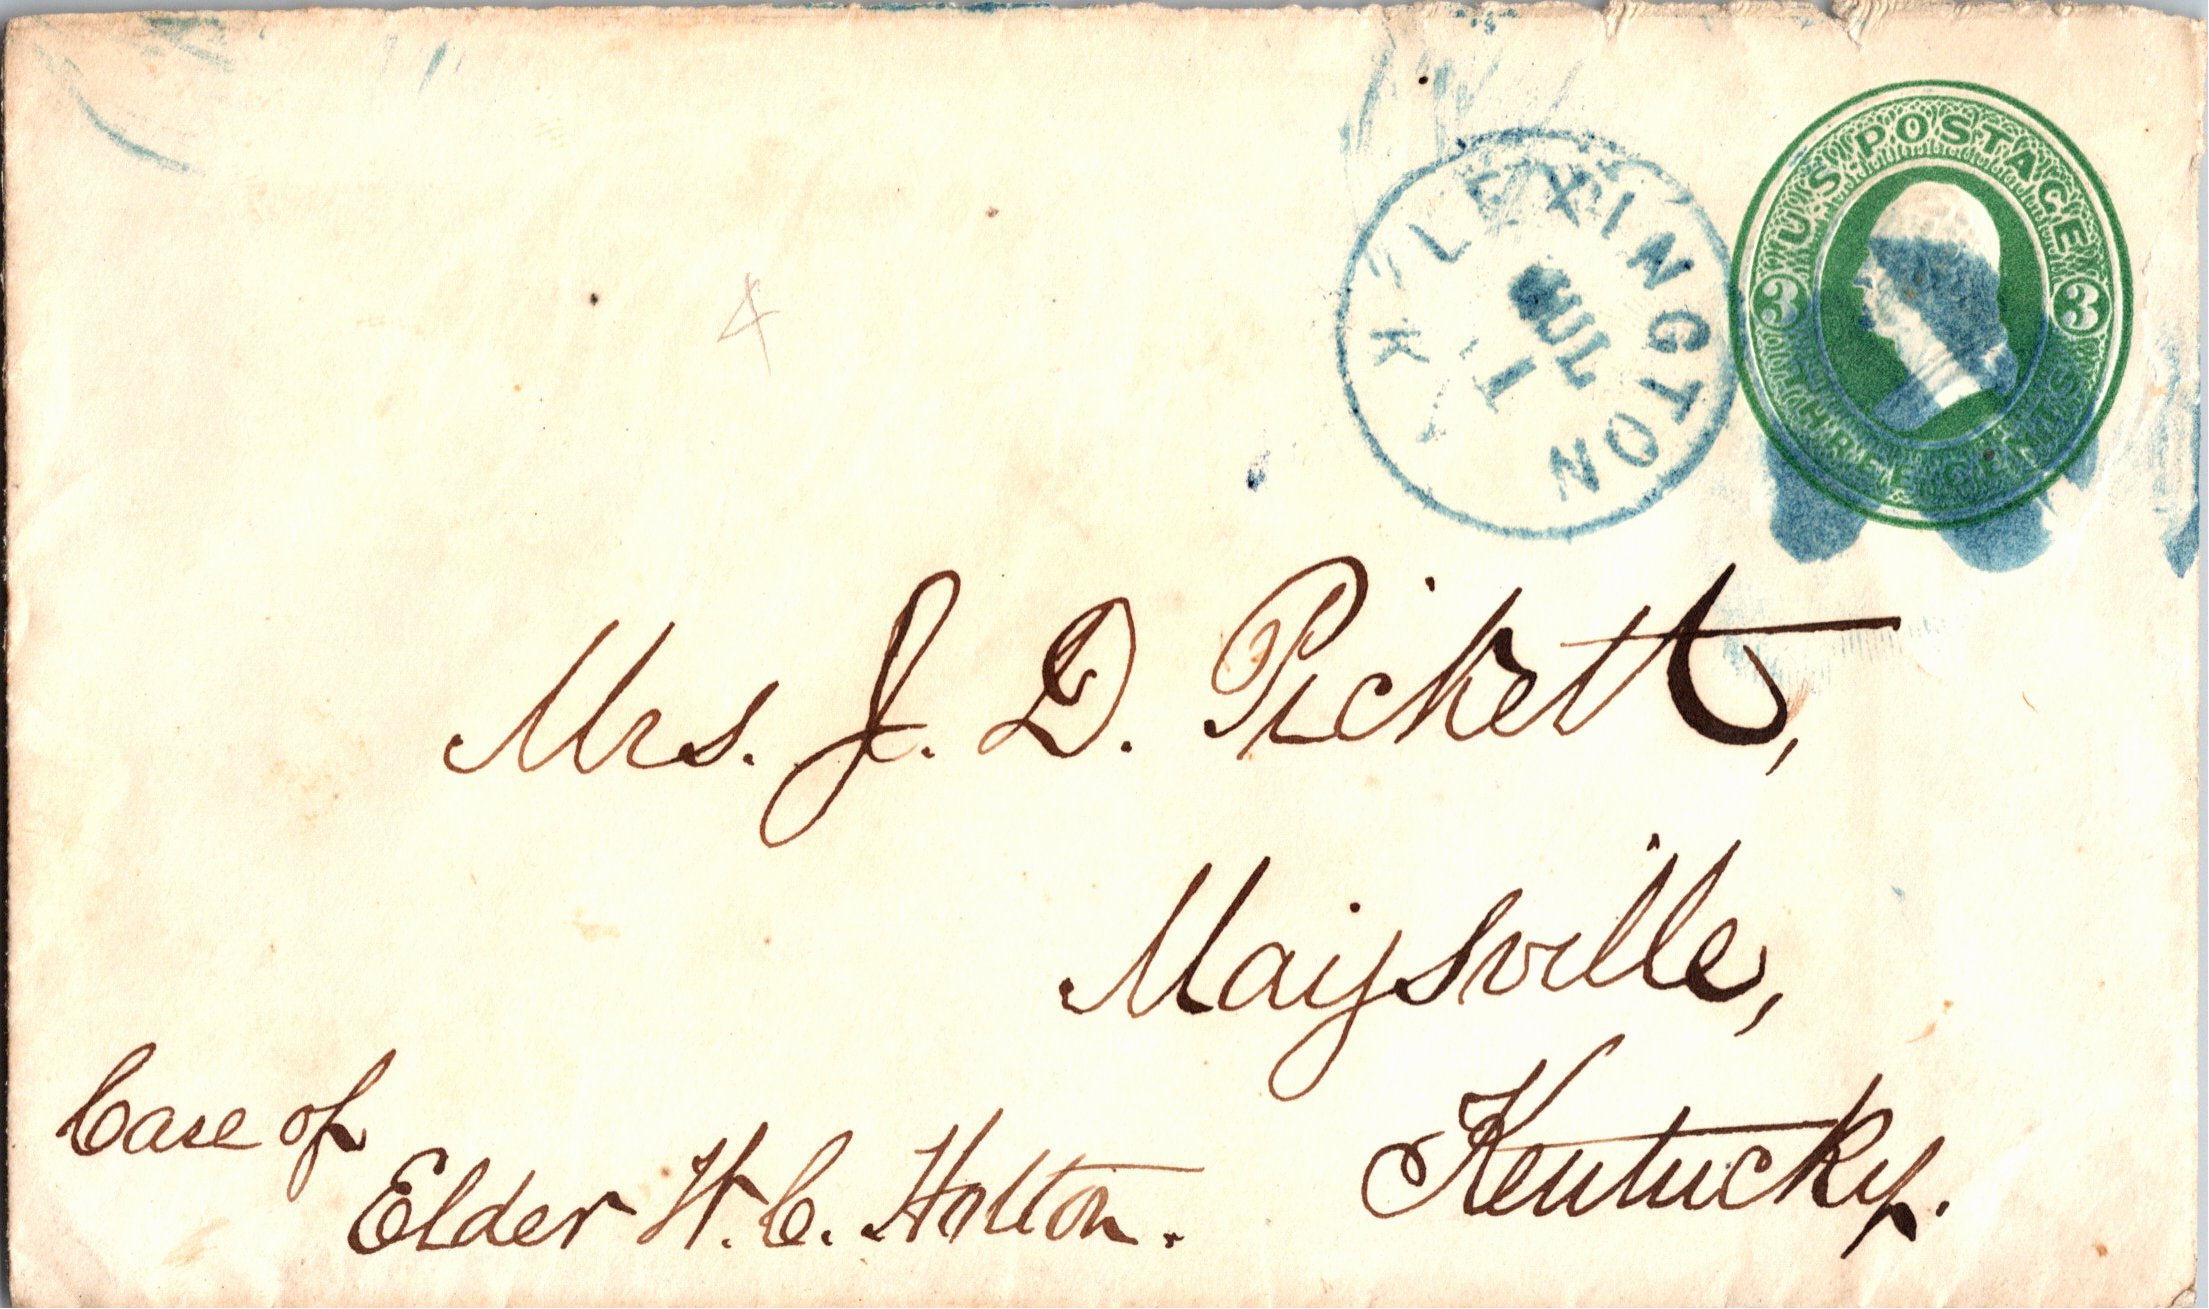 U.S POSTAGE
3 3
THREE CENTS
LEXINGTON
KY
JUL
1
4
Mrs. J. D. Pickett,
Maysville,
Kentucky.
Care of
Elder H. C. Holton.